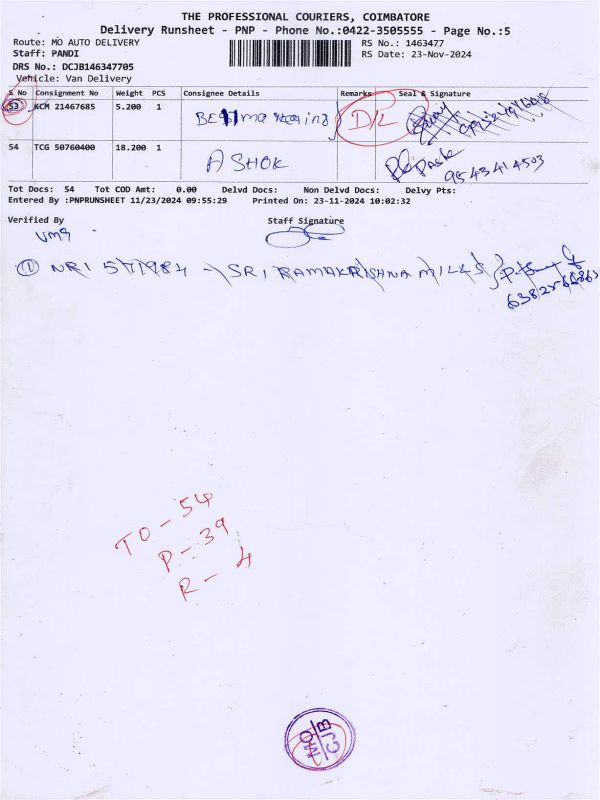 THE PROFESSIONAL COURIERS, COIMBATORE
Delivery Runsheet - PNP - Phone No.:0422-3505555 - Page No.:5
Route: MO AUTO DELIVERY
RS No.: 1463477
Staff: PANDI
RS Date: 23-Nov-2024
DRS No.: DCJB146347705
Vehicle: Van Delivery
S No Consignment No Weight PCS Consignee Details Remarks Seal & Signature
53 KCM 21467685 5.200 1 D/L
54 TCG 50760400 18.200 1 ASHOK
9543414503
Tot Docs: 54 Tot COD Amt: 0.00 Delvd Docs: Non Delvd Docs: Delvy Pts:
Entered By :PNPRUNSHEET 11/23/2024 09:55:29 Printed On: 23-11-2024 10:02:32
Verified By Staff Signature
① SRI RAMAKRISHNA MILLS
TO - 54
P - 39
R - 4
MO
CJB